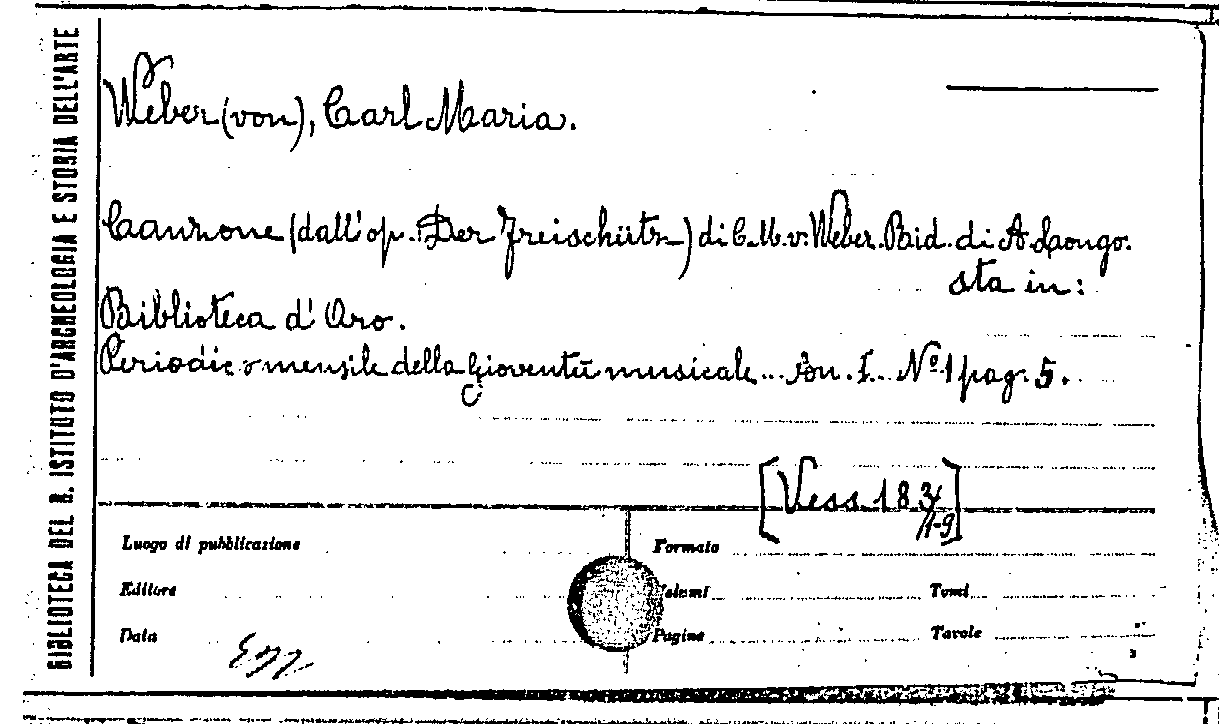 BIBLIOTECA DEL R. ISTITUTO D'ARCHEOLOGIA E STORIA DELL'ARTE
Weber (von), Carl Maria.
Canzone (dall'op. Der Freischütz) di C. M. v. Weber. Rid. di A. Longo.
sta in:
Biblioteca d'Oro.
Periodico mensile della gioventù musicale. An. I. Nº 1 pag. 5.
[Vess. 183/1-9]
Luogo di pubblicazione
Formato
Editore
Volumi
Tomi
Data
Pagine
Tavole